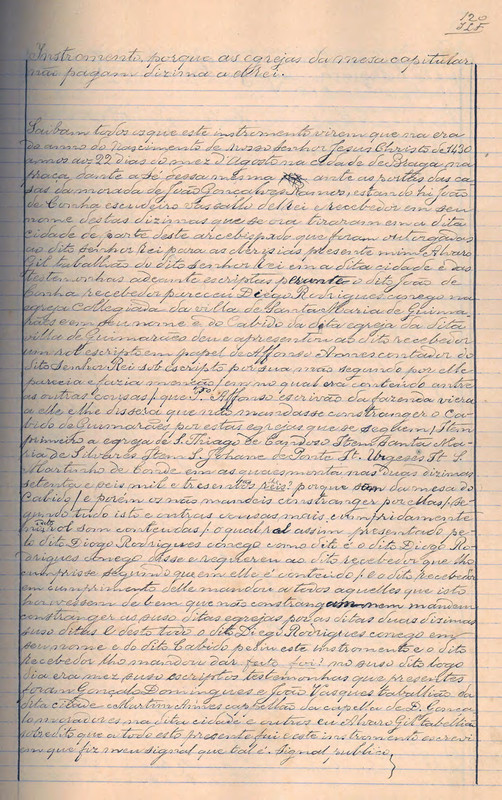 120
Instromento, porque as egrejas da mesa capitular
não pagam dizima a elRei.
Saibam todos os que este instromento virem que na era
do anno do Nascimento de nosso Senhor Jesus Christo de 1430
annos aos 22 dias do mez d'Agosto na cidade de Braga na
praça dante a Sé dessa mesma ante as portas das ca-
sas da morada de João Gonçalves Ramos, estando hi João
de Conha escudeiro vassallo delRei e recebedor em seu
nome destas dizimas que se ora tiraram em a dita
cidade de parte deste arcebispado que foram outorgadas
ao dito Senhor Rei para as presente mim Alvaro
Gil taballião do dito Senhor Rei em a dita cidade e das
testemonhas adeante escriptas perante o dito João de
Conha recebedor pareceu Diego Rodrigues conego na
egreja Collegiada da villa de Santa Maria de Guima-
rães e em seu nome e do Cabido da dita egreja da dita
villa de Guimarães deu e apresentou ao dito recebedor
um rol escripto em papel de Affonso Annes contador do
dito Senhor Rei sob escripto por sua mão segundo por elle
parecia e fazia monção / em no qual era contendo antre
as outras cousas / que Affonso escrivão da fazenda viera
a elle e lhe dissera que não mandasse constranger o Ca-
bido de Guimarães por estas egrejas que se seguem / Item
primeiro a egreja de S. Thiago de Candoso Item Santa Ma-
ria de Silvares Item S. Johane de Ponte It. Urgeses It. S.
Martinho de Conde em as quaes monta nas duas dizimas
setenta e seis mil e trezentos reis? porque som da mesa do
Cabido / e porém os não mandeis constranger por ellas / se-
gundo tudo isto e outras cousas mais cumpridamente
no rol som conteudas / o qual rol assim presentado pe-
lo dito Diogo Rodrigues conego como dito é o dito Diego Ro-
drigues conego disse e requereu ao dito recebedor que lho
cumprisse segundo que em elle é conteudo / e o dito recebedor
em cumprimento delle mandou a todos aquelles que isto
houvessem de bem que não constrangam nem mandem
constranger as suso ditas egrejas por as ditas duas dizimas
suso ditas. E desto todo o dito Diego Rodrigues conego em
seu nome e do dito Cabido pediu este instromento e o dito
recebedor lho mandou dar feito foi? no suso dito logo
dia era mez suso escriptos testemonhas que presentes
foram Gonçalo Domingues e João Vasques taballião da
dita cidade e Martim Annes capellão da capella de D. Gonça-
lo moradores na dita cidade e outros eu Alvaro Gil taballião
sobredito que a todo esto presente fui e este instromento escrevi
em que fiz meu signal que tal é. Signal publico